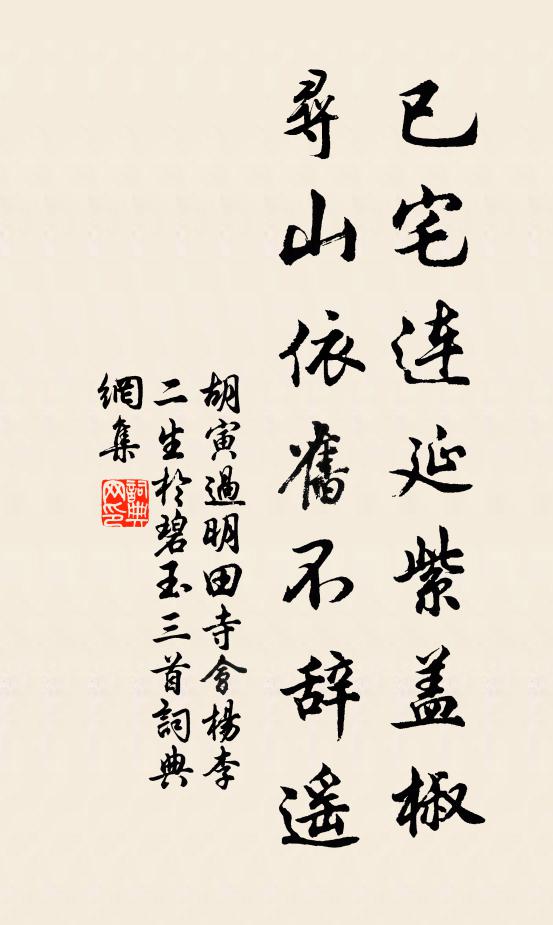 已宅連延紫盖椒
尋山依舊不辞遥
胡寅過明田寺會楊李
二生於碧玉三首詞典
網集
詞典
网印